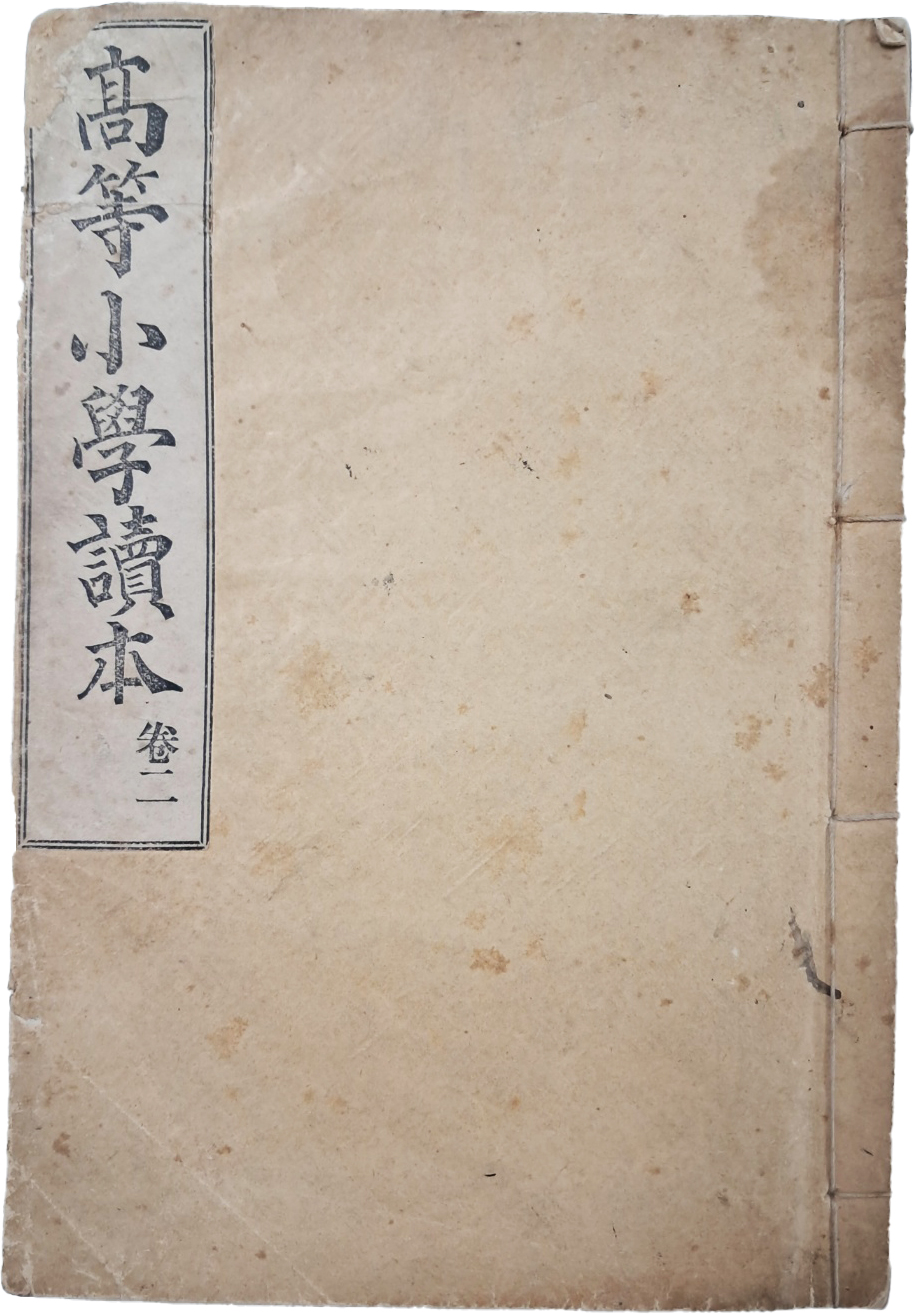 高等小學讀本
卷二